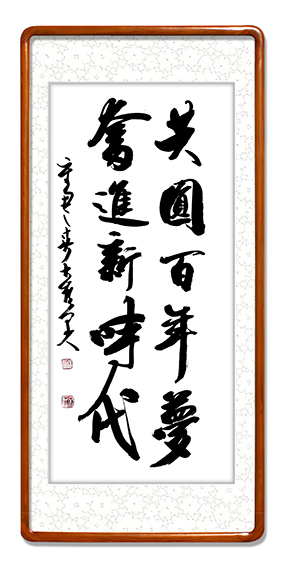 共圓百年夢
奮進新時代